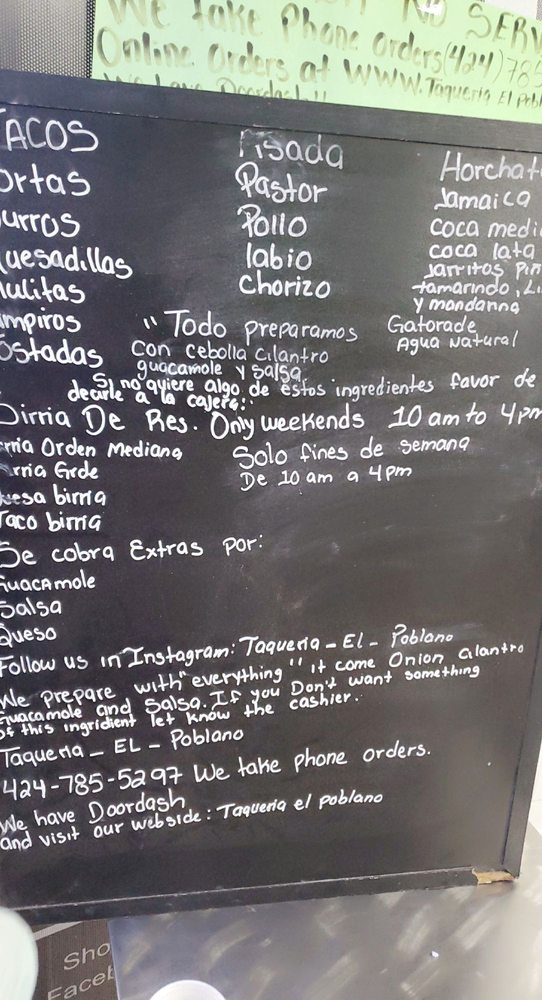 We take Phone orders(424)785
Online Orders at WWW.Taqueria El Pobl
We have Doordash!!
NO SERV
TACOS
ortas
urros
uesadillas
ulitas
mpiros
ostadas
Asada
Pastor
Pollo
labio
Chorizo
Horchat
Jamaica
coca medi
coca lata
Jarritos Piñ
tamarindo, Li
y mandarina
Gatorade
Agua Natural
"Todo preparamos
con cebolla cilantro
guacamole y salsa
Si no quiere algo de estos ingredientes favor de
decirle a la cajera!!
Birria De Res. Only weekends 10 am to 4pm
rria Orden Mediana
rria Grde
uesa birria
Taco birria
Solo fines de semana
De 10 am a 4pm
Se cobra Extras por:
Guacamole
Salsa
Queso
Follow us in Instagram: Taqueria-El-Poblano
We prepare with "everything" it come Onion cilantro
Guacamole and Salsa. If you Don't want something
of this ingridient let know the cashier.
Taqueria-EL-Poblano
424-785-5297 We take phone orders.
We have Doordash,
and visit our webside: Taqueria el poblano
Sho
Faceb